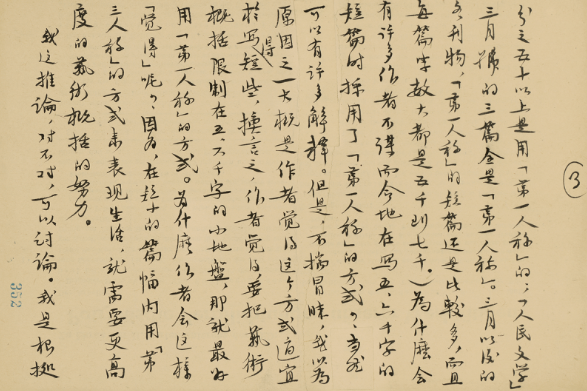 分之五十以上是用「第一人称」的,(「人民文学」
三月号的三篇全是「第一人称」。三月以后的
各刊物,「第一人称」的短篇还是比较多,而且
每篇字数大都是五千到七千。)为什么会
有许多作者不谋而合地在写五、六千字的
短篇时採用了「第一人称」的方式?当然
可以有许多解释。但是,不揣冒昧,我以为
原因之一大概是作者觉得这个方式适宜
於写得短些,换言之,作者觉得要把艺术
概括限制在五、六千字的小地盘,那就最好
用「第一人称」的方式。为什么作者会这样
「觉得」呢?因为,在短小的篇幅内用「第
三人称」的方式来表现生活,就需要更高
度的艺术概括的努力。
我这推论,对不对,可以讨论。我是根据
3
352